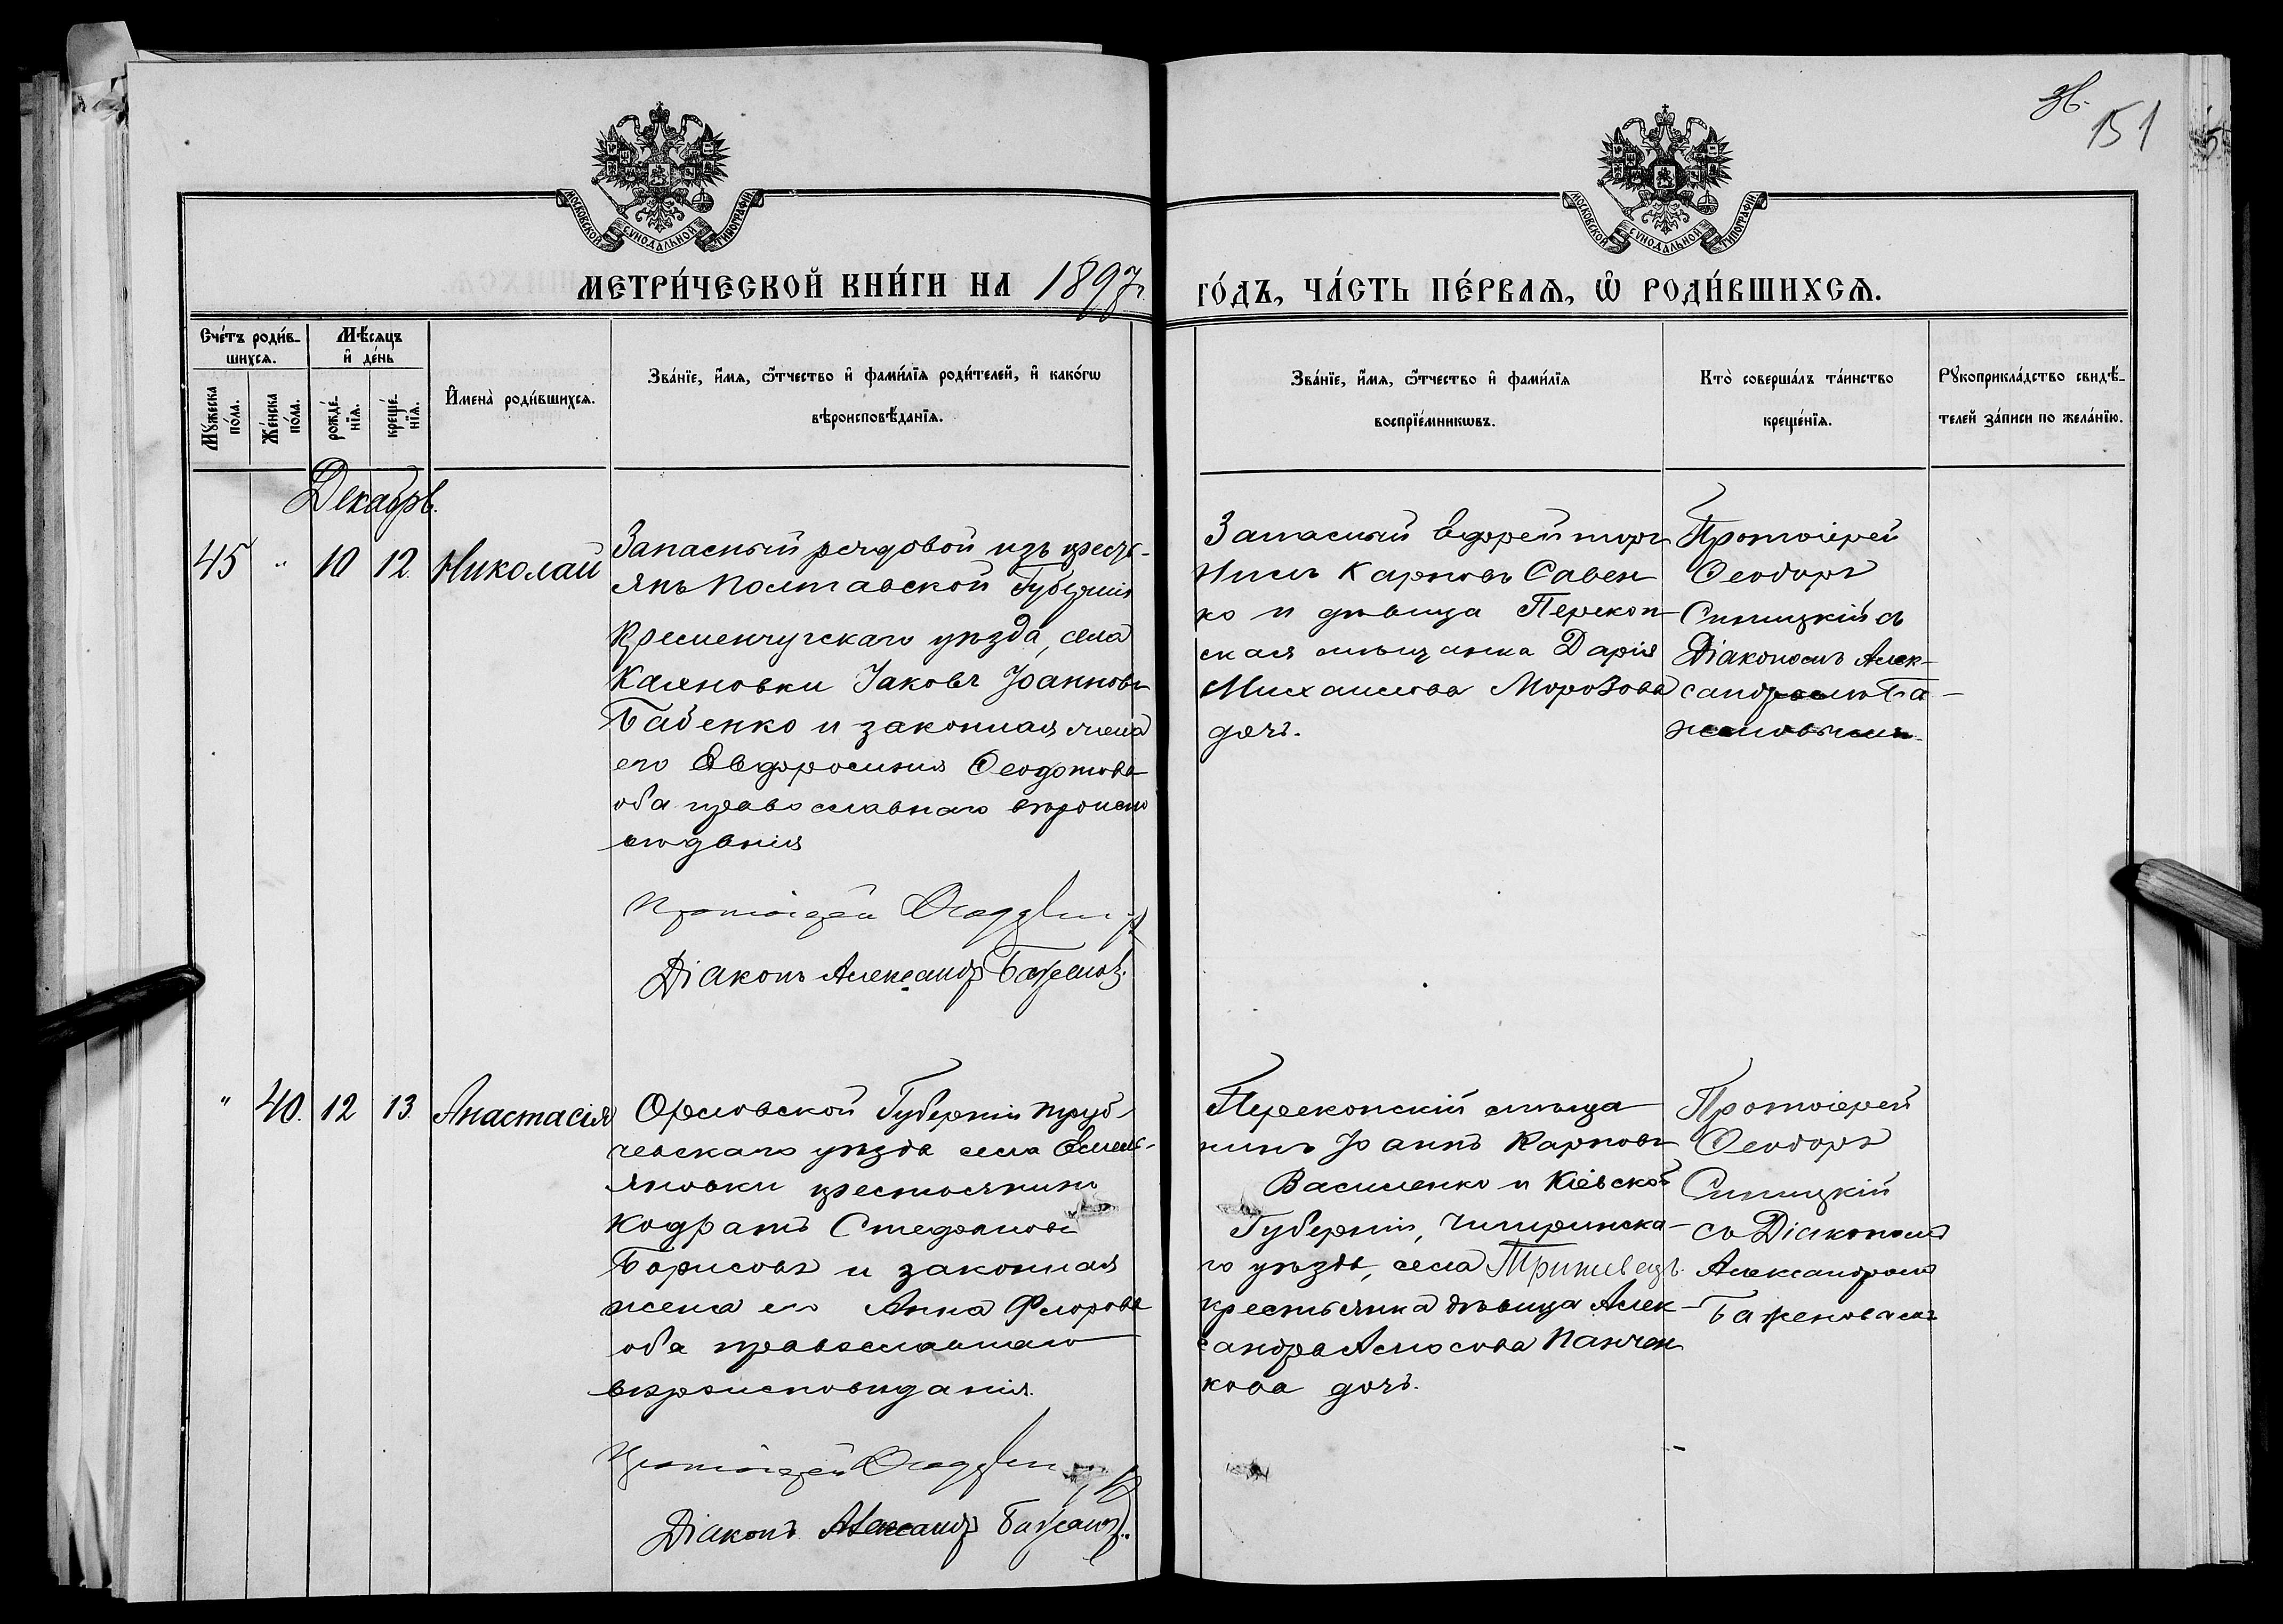 151
МОСКОВСКОЙ СУНОДАЛЬНОЙ ТИПОГРАФІИ
МОСКОВСКОЙ СУНОДАЛЬНОЙ ТИПОГРАФІИ
МЕТРИ́ЧЕСКОЙ КНИ́ГИ НА 1897 г.
ГО́ДЪ, ЧА́СТЬ ПЕ́РВАѦ, Ѡ҆ РОДИ́ВШИХСѦ.
Сче́тъ роди́в-
шихсѧ.
Мѣ́сѧцъ
и҆ де́нь
Му́жеска
по́ла.
Же́нска
по́ла.
рожде́-
нїѧ.
креще́-
нїѧ.
И҆мена̀ роди́вшихсѧ.
Зва́нїе, и҆́мѧ, ѻ҆́тчество и҆ фами́лїѧ роди́телей, и҆ како́гѡ
вѣроисповѣ́данїѧ.
Зва́нїе, и҆́мѧ, ѻ҆́тчество и҆ фами́лїѧ
воспрїе́мникѡвъ.
Кто̀ соверша́лъ та́инство
креще́нїѧ.
Рукоприкла́дство свидѣ́-
телей за́писи по жела́нїю.
Декабрь.
45 " 10 12. Николай
Запасный рядовой изъ кресть-
янъ Полтавской Губерніи
Кременчугскаго уѣзда, села
Каменовки Іаковъ Іоанновъ
Бабенко и законная жена
его Евфросинія Ѳеодотова
оба православнаго вѣроиспо
вѣданія
Протоіерей
Діаконъ Александр Баженов.
Запасный Ефрейторъ
Карповъ Савен
ко и дѣвица Перекоп
ская мѣщанка Дарія
Михаилова Морозова
дочь.
Протоіерей
Ѳеодоръ
Синицкій съ
Діакономъ Алек-
сандромъ Ба-
женовымъ
" 40. 12 13. Анастасія
Орловской Губерніи Труб-
чевскаго уѣзда села Емель-
яновки крестьянинъ
Кодратъ Стефановъ
Борисовъ и законная
жена его Анна Флорова
оба православнаго
вѣроисповѣданія.
Протоіерей
Діаконъ Александр Баженов.
Перекопскій мѣща
нинъ Іоаннъ Карповъ
Василенко и Кіевской
Губерніи, Чигиринска-
го уѣзда, села
крестьянка дѣвица Алек-
сандра Амосова Панчен
кова дочь.
Протоіерей
Ѳеодоръ
Синицкій
съ Діакономъ
Александромъ
Баженовымъ